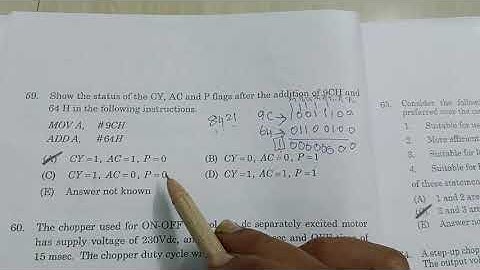 59. Show the status of the CY, AC and P flags after the addition of 9CH and
64 H in the following instructions.
MOV A, #9CH
ADD A, #64H
(A) CY=1, AC=1, P=0 (B) CY=0, AC=0, P=1
(C) CY=1, AC=0, P=0 (D) CY=1, AC=1, P=1
(E) Answer not known
8421
9C → 10011100
64 → 01100100
1 00000000
60. The chopper used for ON-OFF dc separately excited motor
has supply voltage of 230Vdc, an sec and OFF time of
15 msec. The chopper duty cycle
63. Consider the follow
preferred over the
1. Suitable for
2. More efficient
3. Suitable for
4. Suitable for
of these statemen
(A) 1 and 2
2 and 3
64. A step-up chopp
The output vol